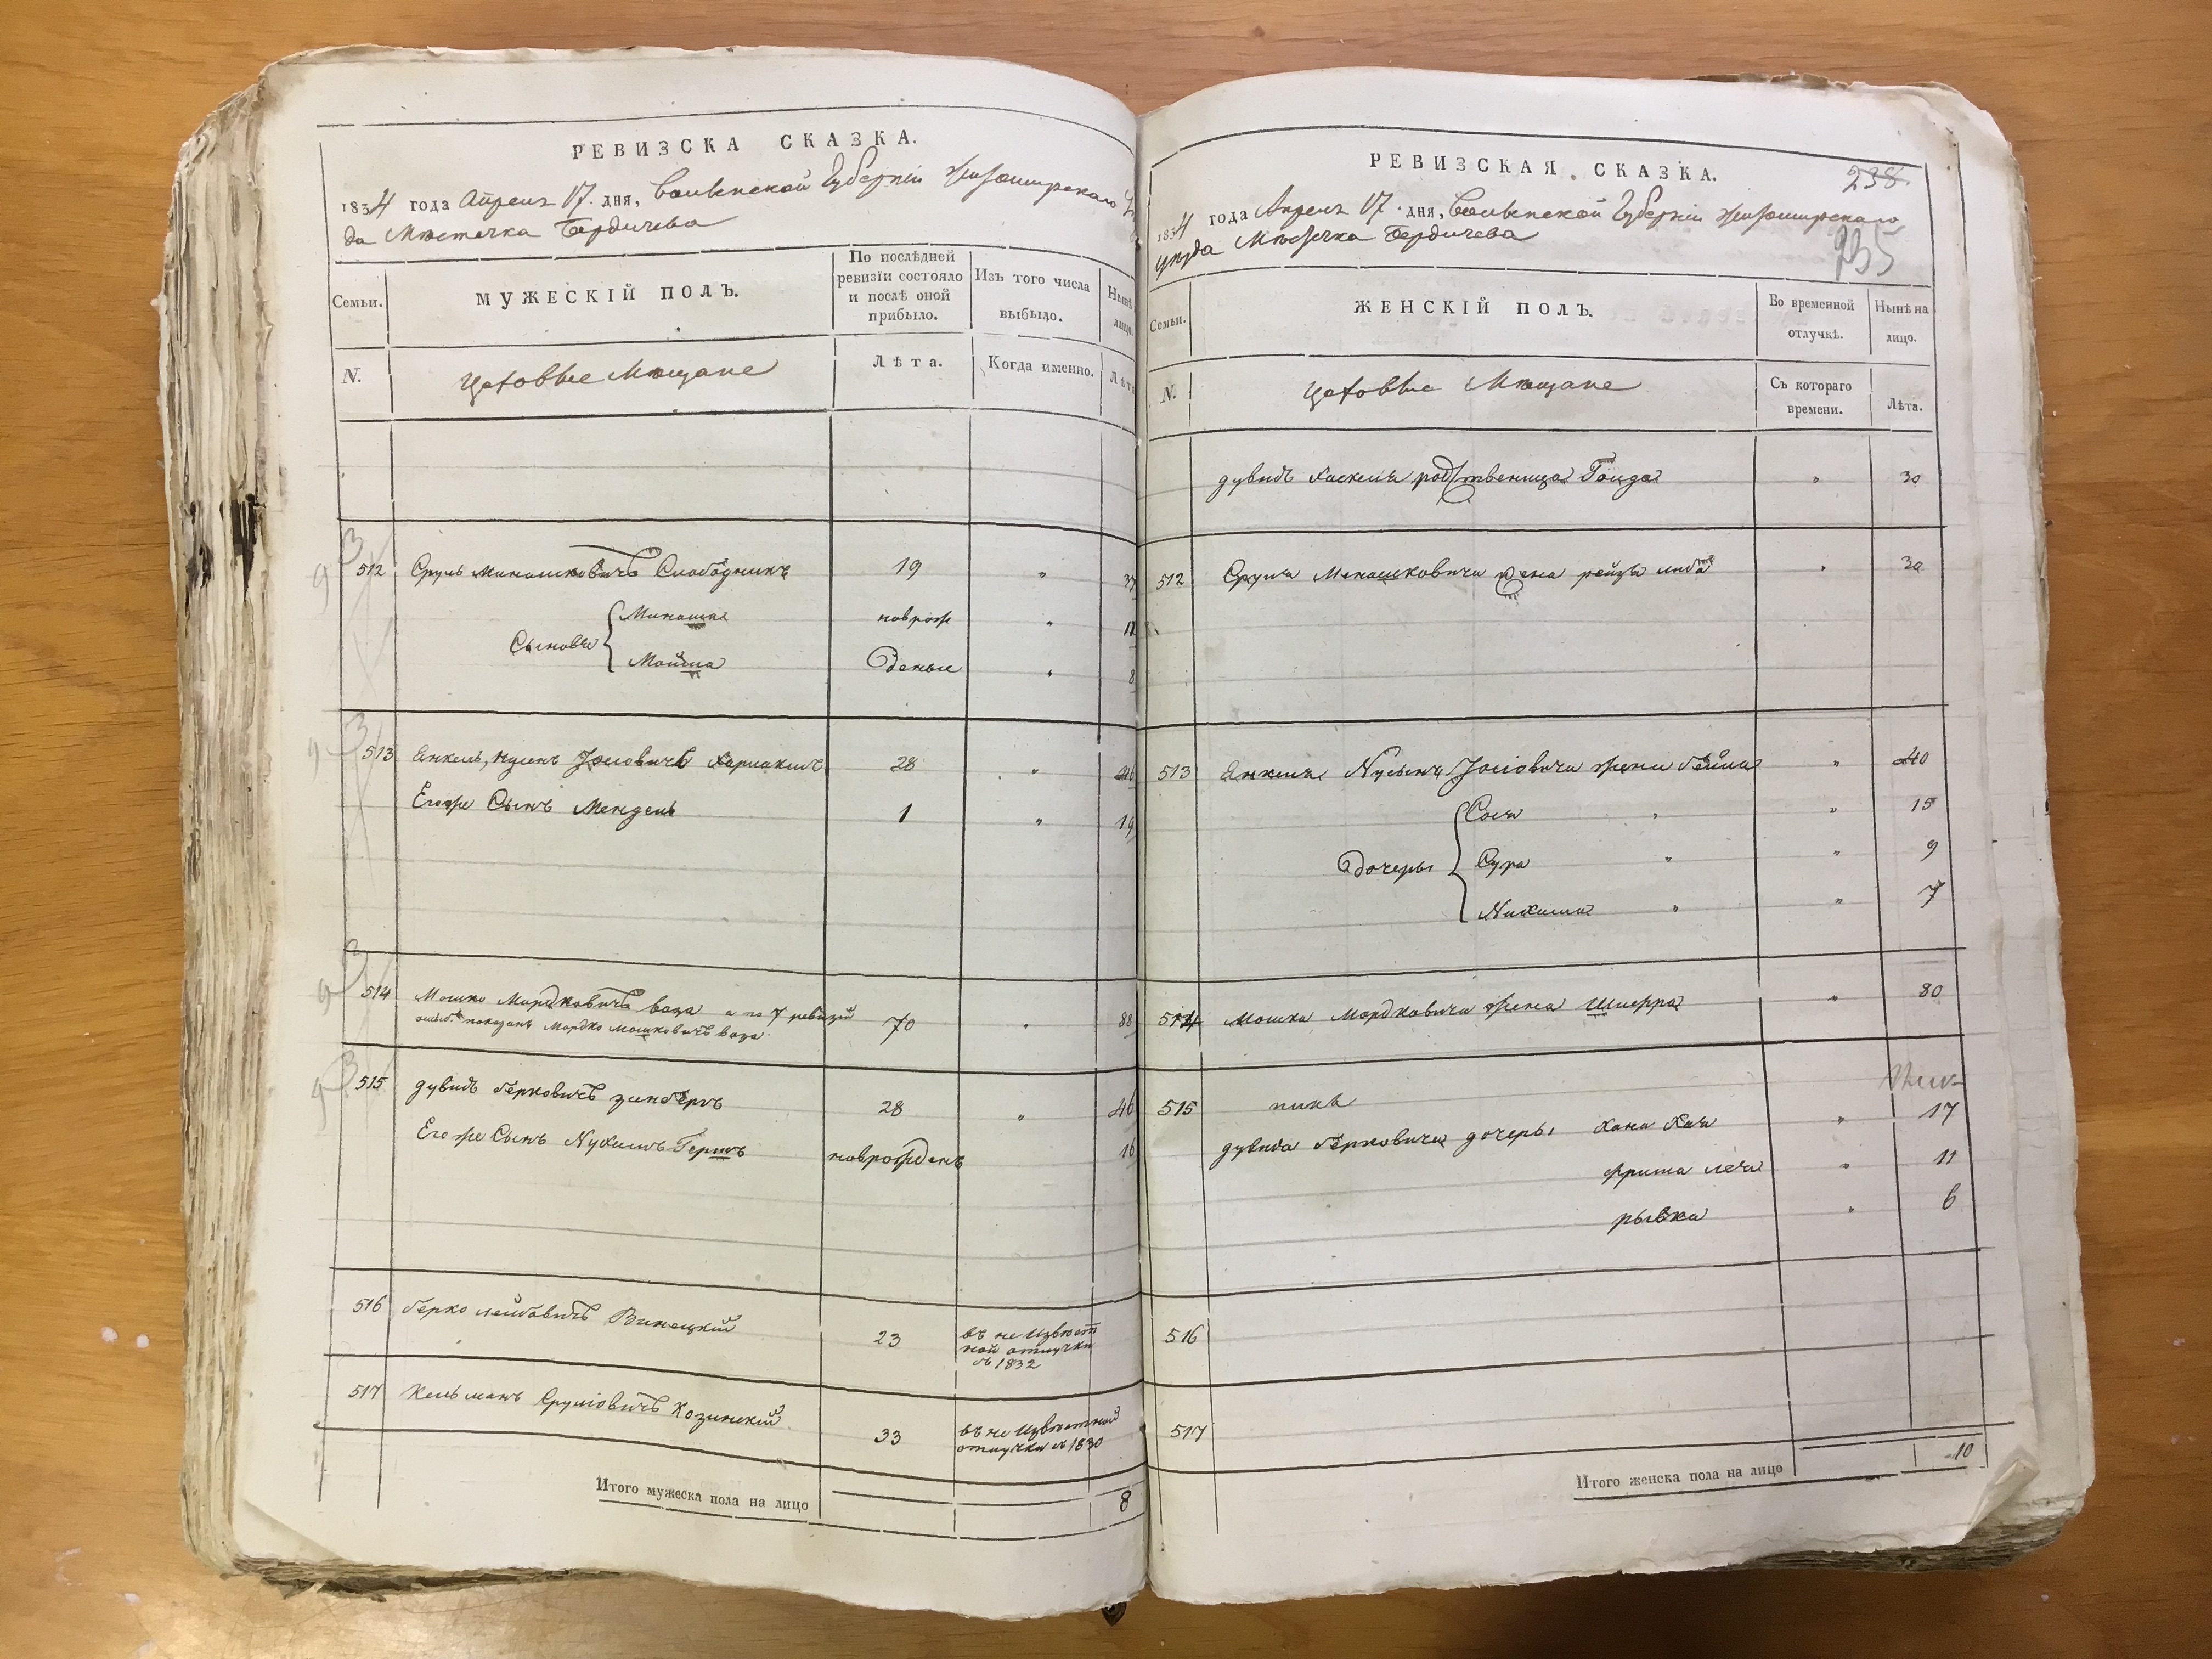 РЕВИЗСКА СКАЗКА.
1834 года Апреля 17 дня, Волынской Губернии Житомирского
да Местечка Бердичева
Семьи.
МУЖЕСКІЙ ПОЛЪ.
По послѣдней ревизіи состояло и послѣ оной прибыло.
Изъ того числа выбыдо.
Нынѣ лицо.
N.
Цеховые Мещане
Лѣта.
Когда именно.
Лѣта
512 Сруль Минашковичъ Слободникъ 19 " 37
Сыновья
Минашка новрож " 12
Мошка деные " 8
513 Янкель, Нусенъ Іосіовичъ 28 " 46
Егоже Сынъ Мендель 1 " 19
514 Мошко Мордковичъ ваза а по 7 ревизіи 70 " 88
ошиб. показанъ Мордко Мошковичъ ваза
515 дувидъ берковичъ зинберъ 28 " 46
Егоже Сынъ Нухимъ Гершъ новрожденъ 16
516 берко лейбовичъ Винецкій 23 въ не извѣст
ной отлучки
съ 1832
517 Кельманъ Сруліовичъ Козинскій 33 въ не извѣстной
отлучки съ 1830
Итого мужеска пола на лицо 8
РЕВИЗСКАЯ СКАЗКА.
238
1834 года Апреля 17 дня, Волынской Губерніи Житомирского
уезда Местечка Бердичева
235
Семьи.
ЖЕНСКІЙ ПОЛЪ.
Во временной отлучкѣ.
Нынѣ на лицо.
N.
Цеховые Мещане
Съ котораго времени.
Лѣта.
дувидъ Хаскеля родственица Голда " 30
512 Сруля Менашковича жена рейзя либа " 30
513 Янкеля Нусына Іосіовича жена бейла " 40
дочеры
Сося " " 15
Сура " " 9
" " 7
514 Мошка Мордковича жена Шифра " 80
515
дувида берковича дочеры Хана Хая " 17
фрима лея " 11
рывка " 6
516
517
Итого женска пола на лицо 10